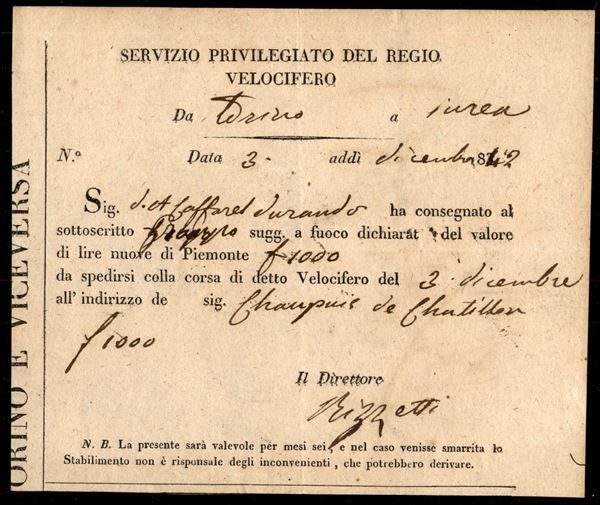 SERVIZIO PRIVILEGIATO DEL REGIO
VELOCIFERO
Da Torino a ivrea
N.º Data 3. addì dicembre 1842
Sig. Caffarel Durando ha consegnato al
sottoscritto sugg. a fuoco dichiarat del valore
di lire nuove di Piemonte f 1000
da spedirsi colla corsa di detto Velocifero del 3. dicembre
all' indirizzo de sig. de Chatillon
f 1000
Il Direttore
Rizzetti
N. B. La presente sarà valevole per mesi sei, e nel caso venisse smarrita lo
Stabilimento non è risponsale degli inconvenienti, che potrebbero derivare.
ORINO E VICEVERSA